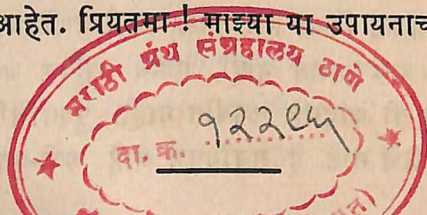 आहेत. प्रियतमा ! माझ्या या उपायनाच
मराठी ग्रंथ संग्रहालय ठाणे
दा. क्र. १२२९५